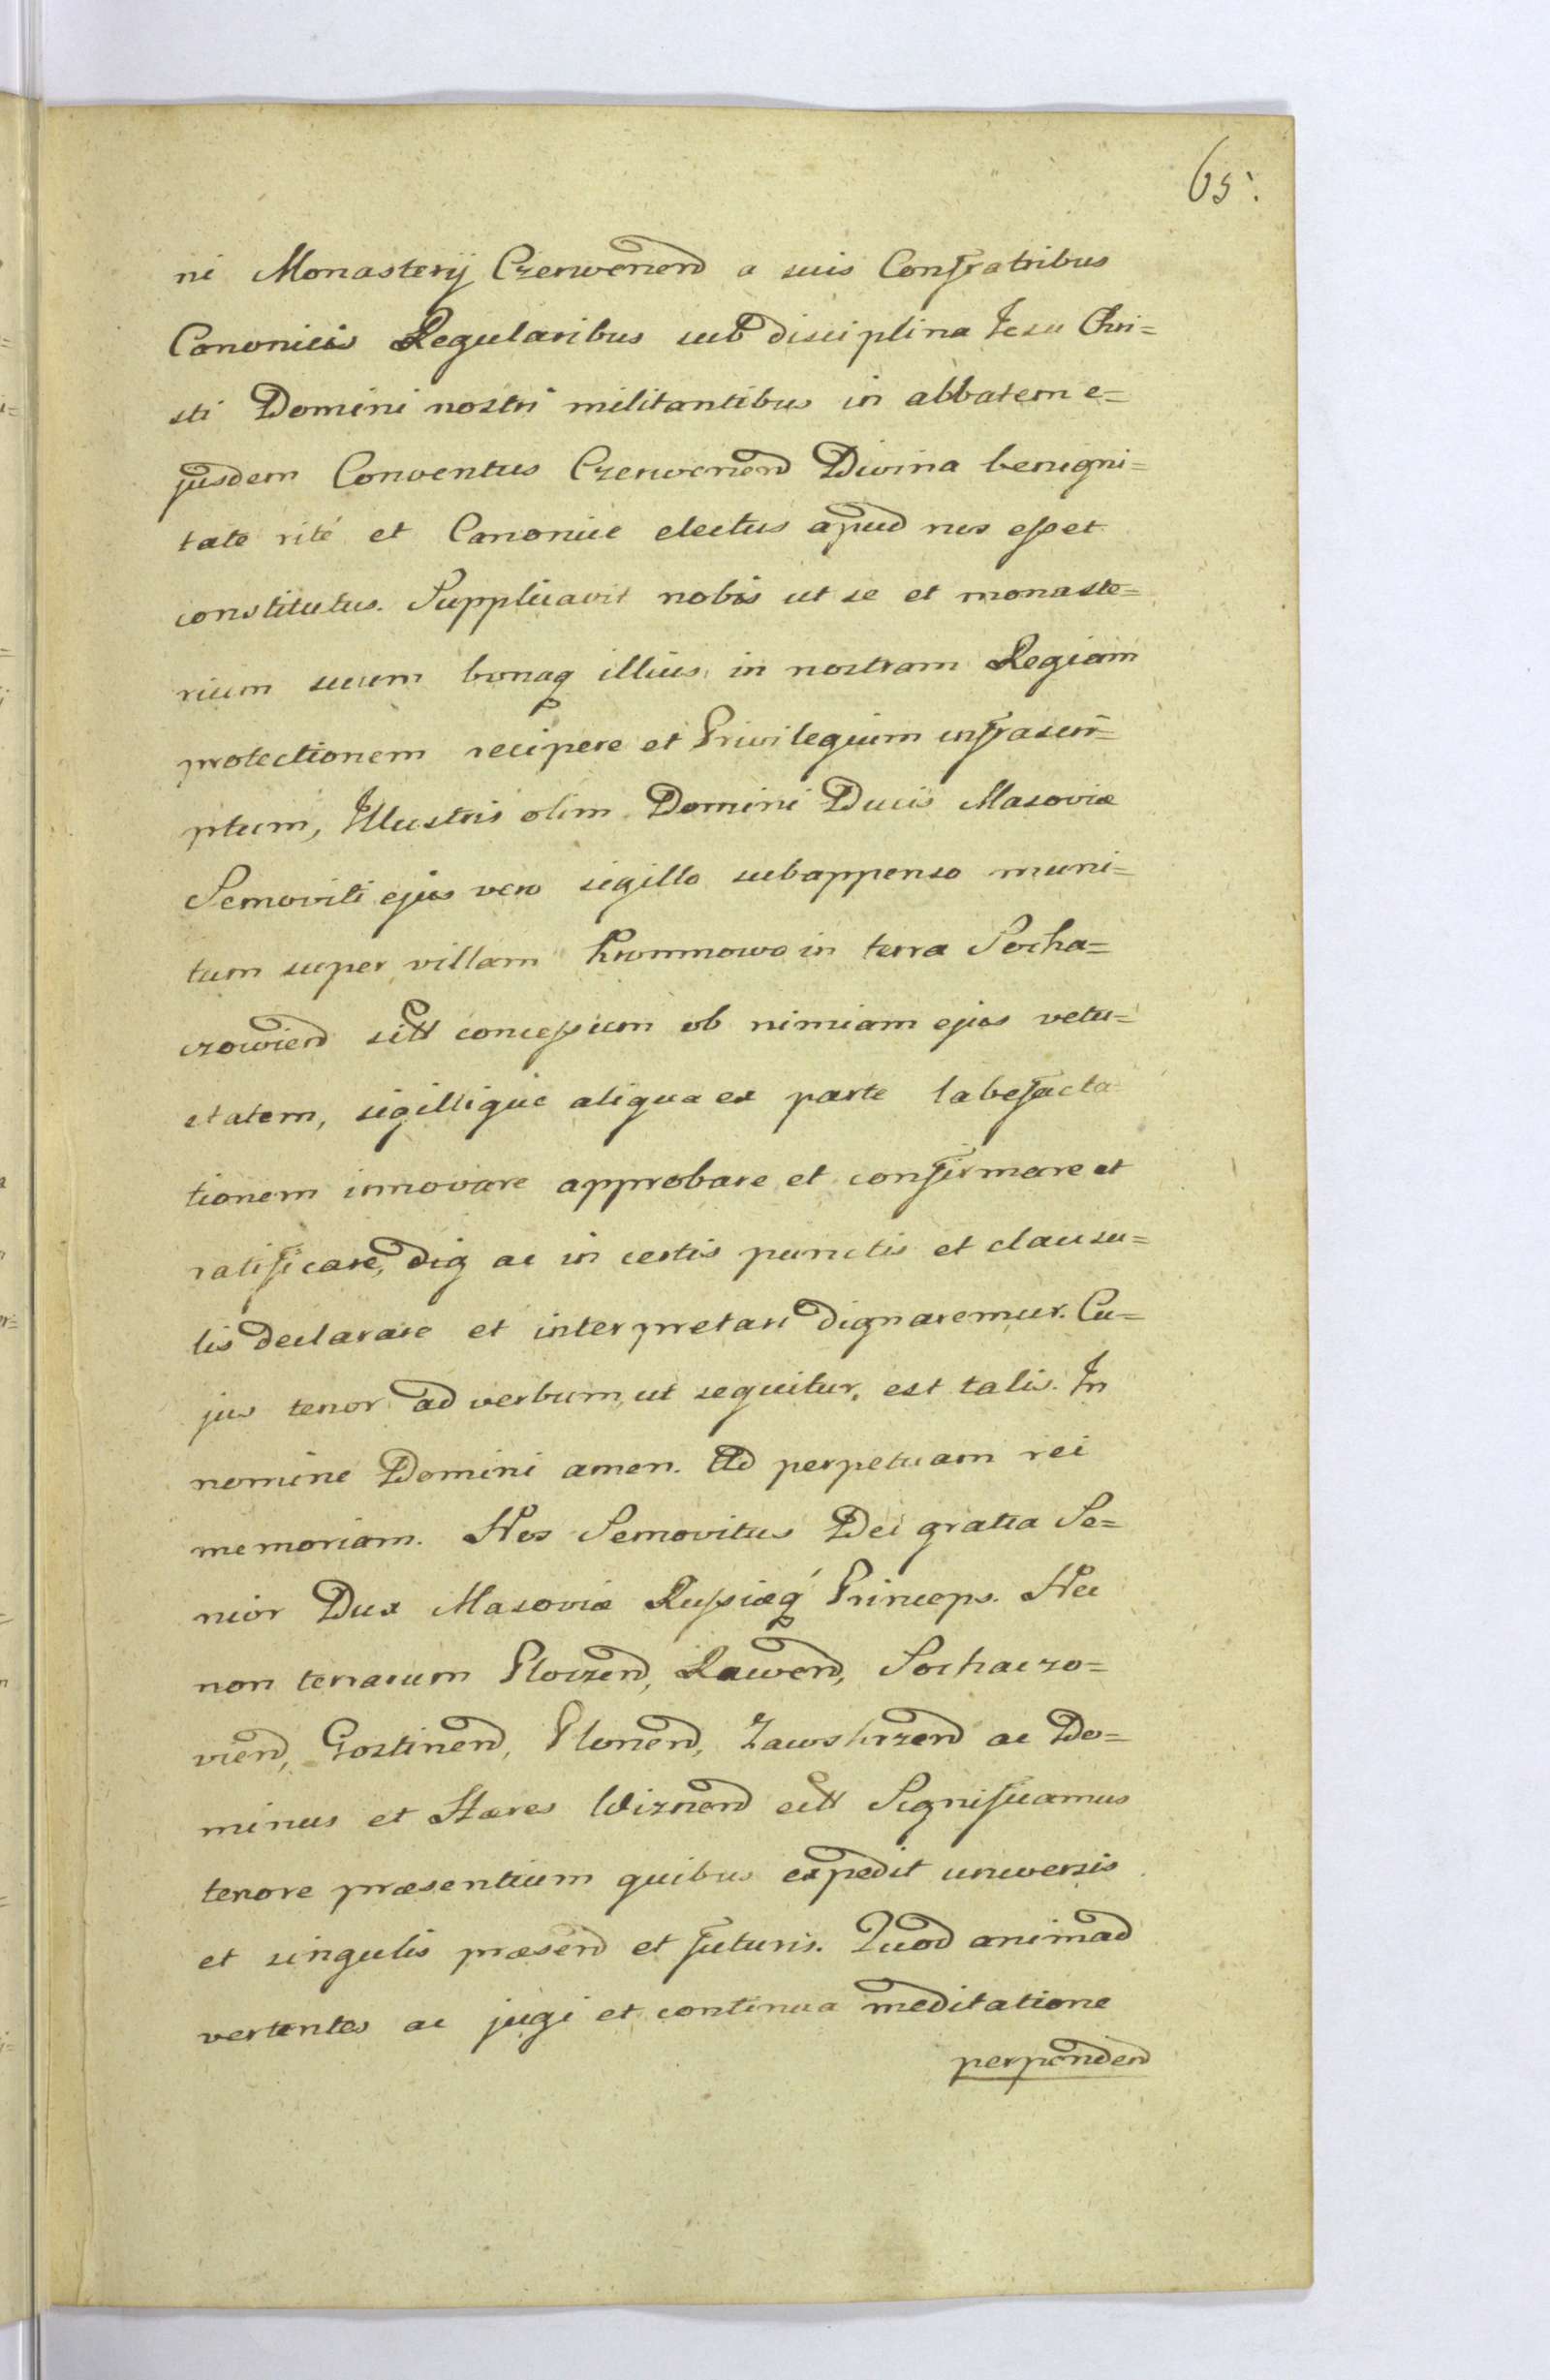 65.
ni Monasterij Czerwenend a suis Confratribus
Canonicis Regularibus sub disciplina Jesu Chri=
sti Domini nostri militantibus in abbatem e=
jusdem Conventus Czerwenend Divina benigni=
tate rité et Canonice electus apud nos esset
constitutus. Supplicavit nobis ut se et monaste=
rium suum bonaq illius, in nostram Regiam
protectionem recipere et Privilegium infrascri=
ptum, Illustris olim Domini Ducis Masoviæ
Semoviti ejus vero sigillo subappenso muni=
tum super villam in terra Socha=
czowiend sitt concessum ob nimiam ejus vetu=
statem, sigillique aliqua ex parte labefacta
tionem innovare approbare et confirmare et
ratificare, diq ac in certis punctis et clausu=
lis declarare et interpretari dignaremur. Cu=
jus tenor ad verbum, ut sequitur, est talis. In
nomine Domini amen. Ad perpetuam rei
memoriam. Nos Semovitus Dei gratia Se=
nior Dux Masoviæ Russiæq Princeps. Nec
non terrarum Plocend, Rawend, Sochaczo=
viend, Gostinend, Plonend, Zawskrzend ac Do=
minus et Hæres Wiznend ett Significamus
tenore præsentium quibus expedit universis
et singulis præsend et futuris. Quod animad
vertentes ac jugi et continua meditatione
perpendend